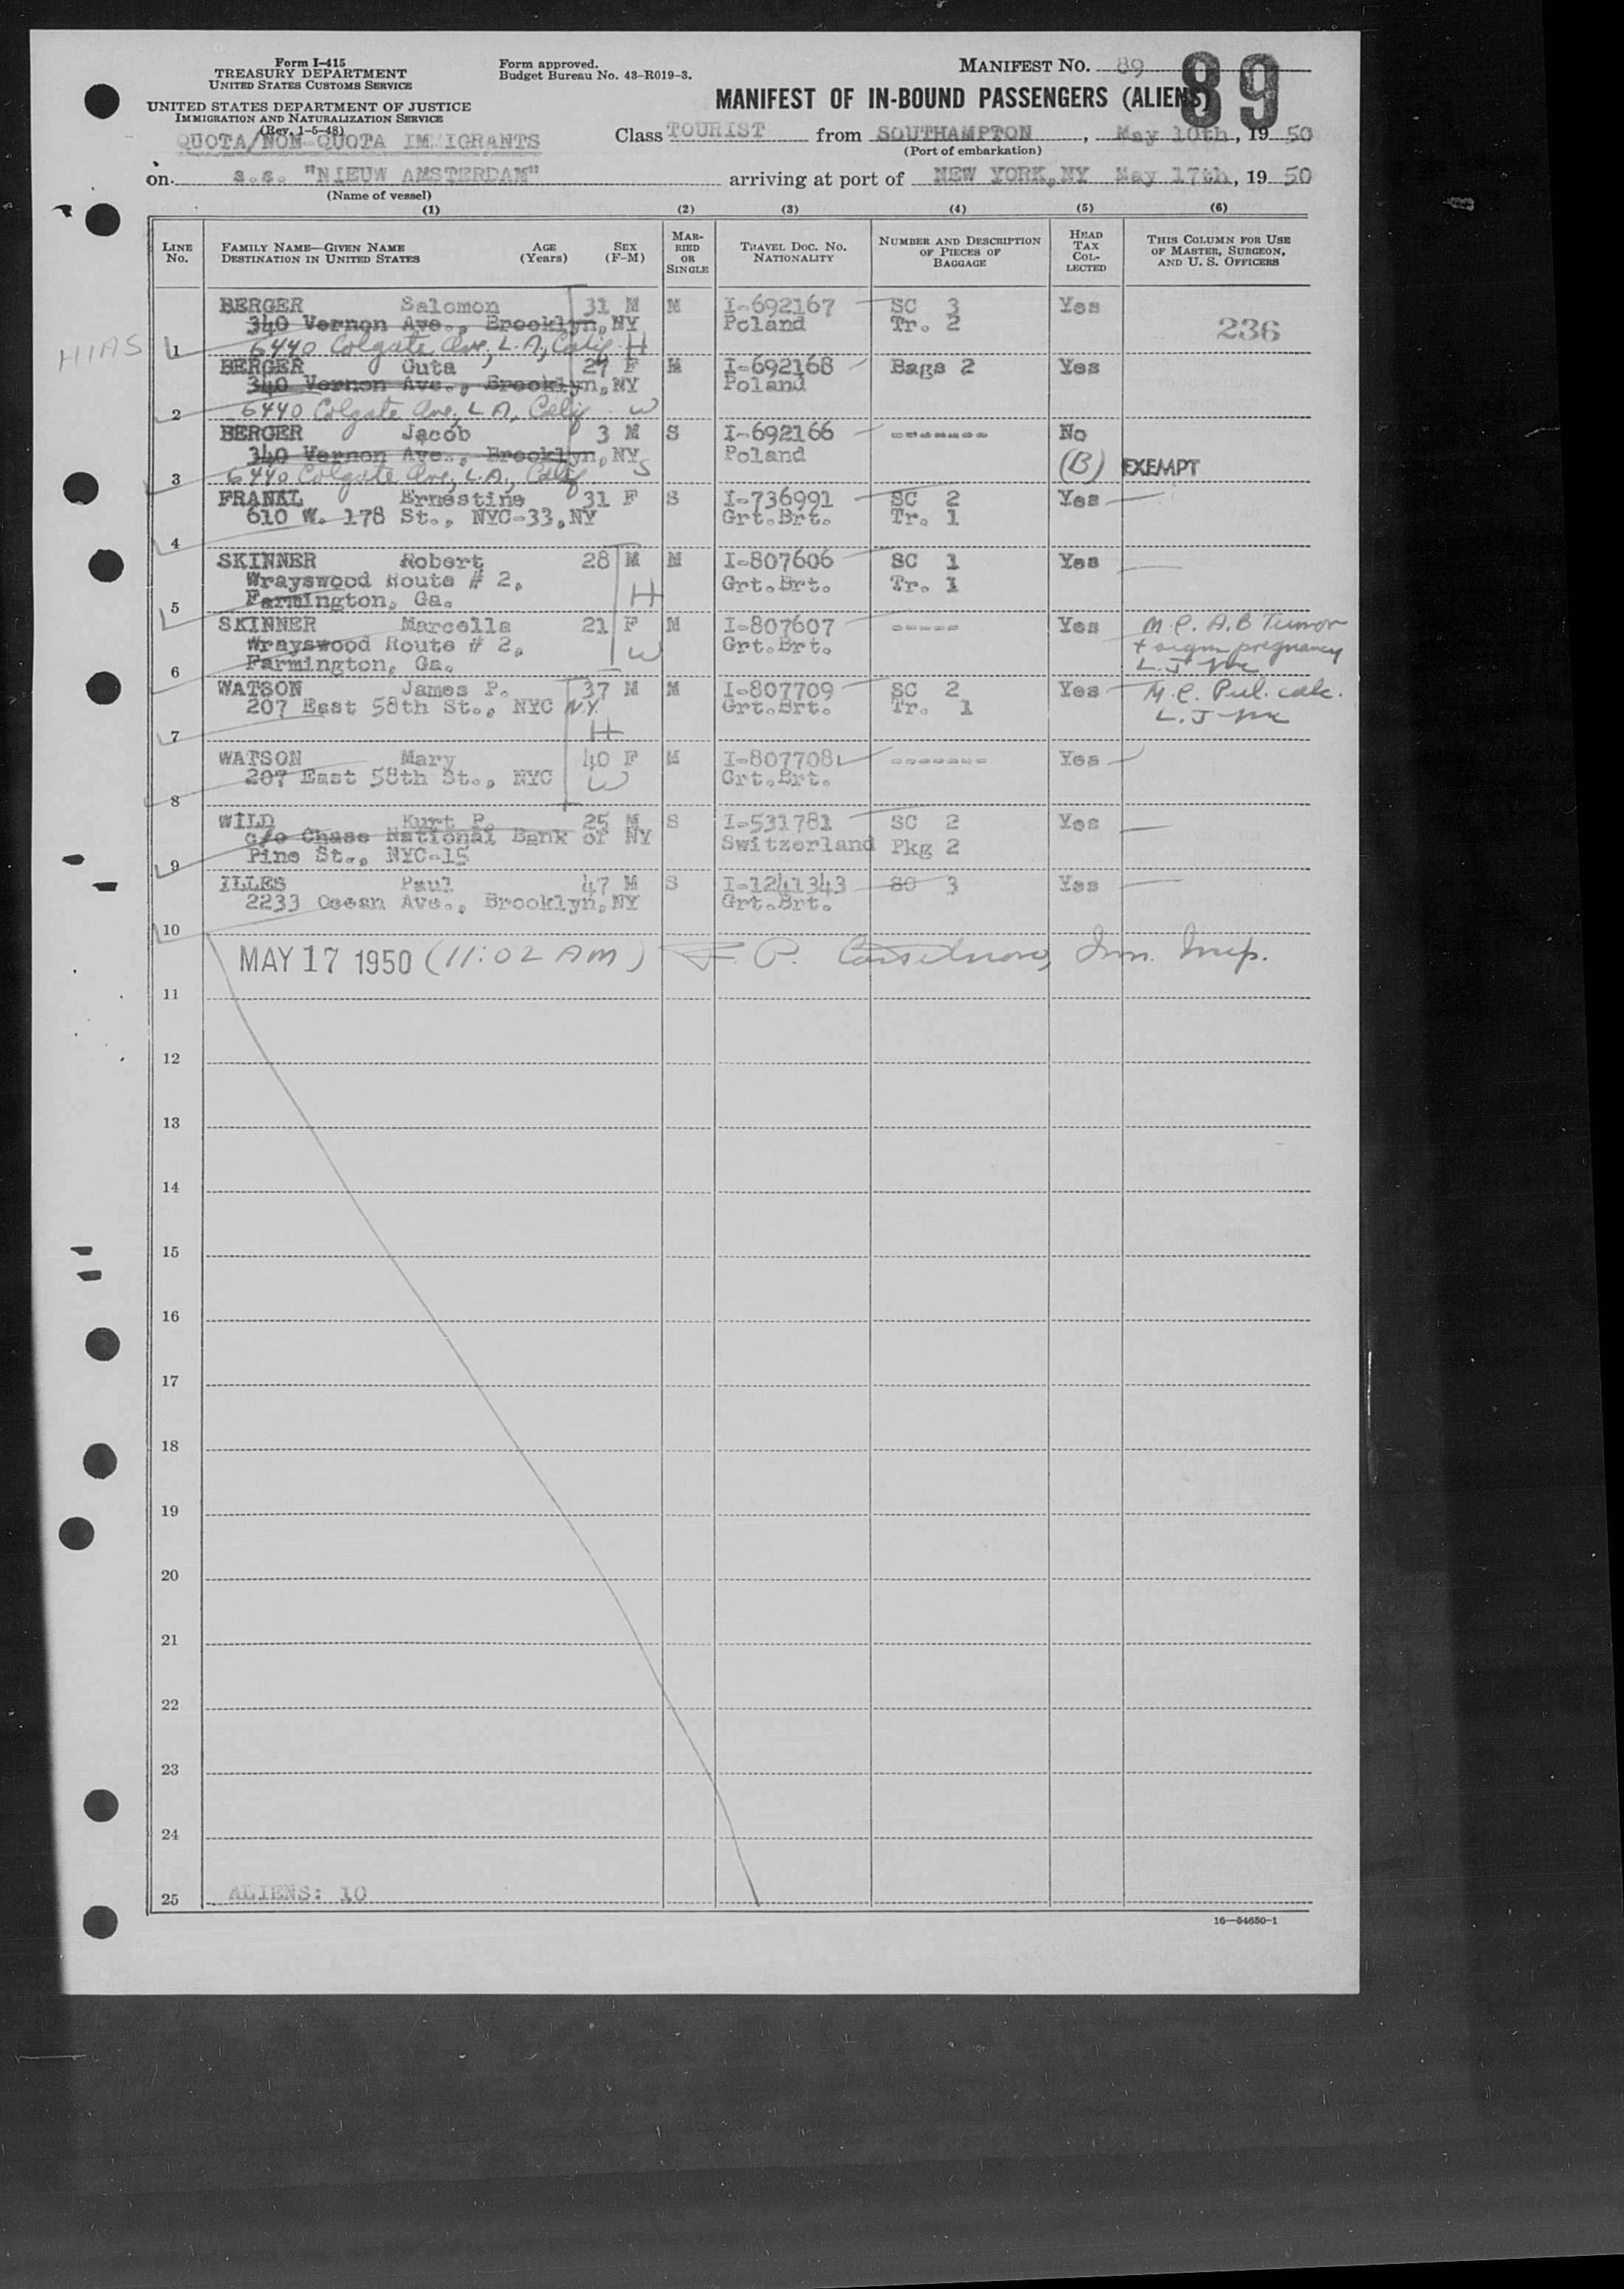 Form I-415
TREASURY DEPARTMENT
UNITED STATES CUSTOMS SERVICE
UNITED STATES DEPARTMENT OF JUSTICE
IMMIGRATION AND NATURALIZATION SERVICE
(Rev. 1-5-48)
QUOTA/NON-QUOTA IMMIGRANTS
Form approved.
Budget Bureau No. 43-R019-3.
MANIFEST NO. 89
89
MANIFEST OF IN-BOUND PASSENGERS (ALIENS)
Class TOURIST from SOUTHAMPTON, May 10th, 19 50
(Port of embarkation)
on s.s. "NIEUW AMSTERDAM" arriving at port of NEW YORK, NY May 17th, 19 50
(Name of vessel)
(1) (2) (3) (4) (5) (6)
LINE No. FAMILY NAME—GIVEN NAME DESTINATION IN UNITED STATES AGE (Years) SEX (F-M) MARRIED OR SINGLE TRAVEL DOC. NO. NATIONALITY NUMBER AND DESCRIPTION OF PIECES OF BAGGAGE HEAD TAX COLLECTED THIS COLUMN FOR USE OF MASTER, SURGEON, AND U. S. OFFICERS
BERGER Salomon 31 M M I-692167 SC 3 Yes
340 Vernon Ave., Brooklyn, NY Poland Tr. 2 236
HIAS 1 6440 Colgate Ave, L.A, Calif H
BERGER Guta 29 F M I-692168 Bags 2 Yes
340 Vernon Ave., Brooklyn, NY Poland
2 6440 Colgate Ave, L.A, Calif W
BERGER Jacob 3 M S I-692166 ------- No
340 Vernon Ave., Brooklyn, NY Poland (B) EXEMPT
3 6440 Colgate Ave, L.A., Calif S
FRANKL Ernestine 31 F S I-736991 SC 2 Yes
610 W. 178 St., NYC-33, NY Grt.Brt. Tr. 1
4
SKINNER Robert 28 M M I-807606 SC 1 Yes
Wrayswood Route # 2, Grt.Brt. Tr. 1
5 Farmington, Ga. H
SKINNER Marcella 21 F M I-807607 ----- Yes M.C. A.B Tumor
Wrayswood Route # 2, W Grt.Brt. pregnancy
6 Farmington, Ga.
WATSON James P. 37 M M I-807709 SC 2 Yes M.C. Pul. calc.
207 East 58th St., NYC N.Y. Grt.Brt. Tr. 1
7 H
WATSON Mary 40 F M I-807708 ------- Yes
207 East 58th St., NYC W Grt.Brt.
8
WILD Kurt P. 25 M S I-531781 SC 2 Yes
c/o Chase National Bank of NY Switzerland Pkg 2
9 Pine St., NYC-15
ILLES Paul 47 M S I-1241343 SC 3 Yes
2233 Ocean Ave., Brooklyn, NY Grt.Brt.
10
MAY 17 1950 (11:02 AM) Imm. Insp.
11
12
13
14
15
16
17
18
19
20
21
22
23
24
25 ALIENS: 10
16—54650-1